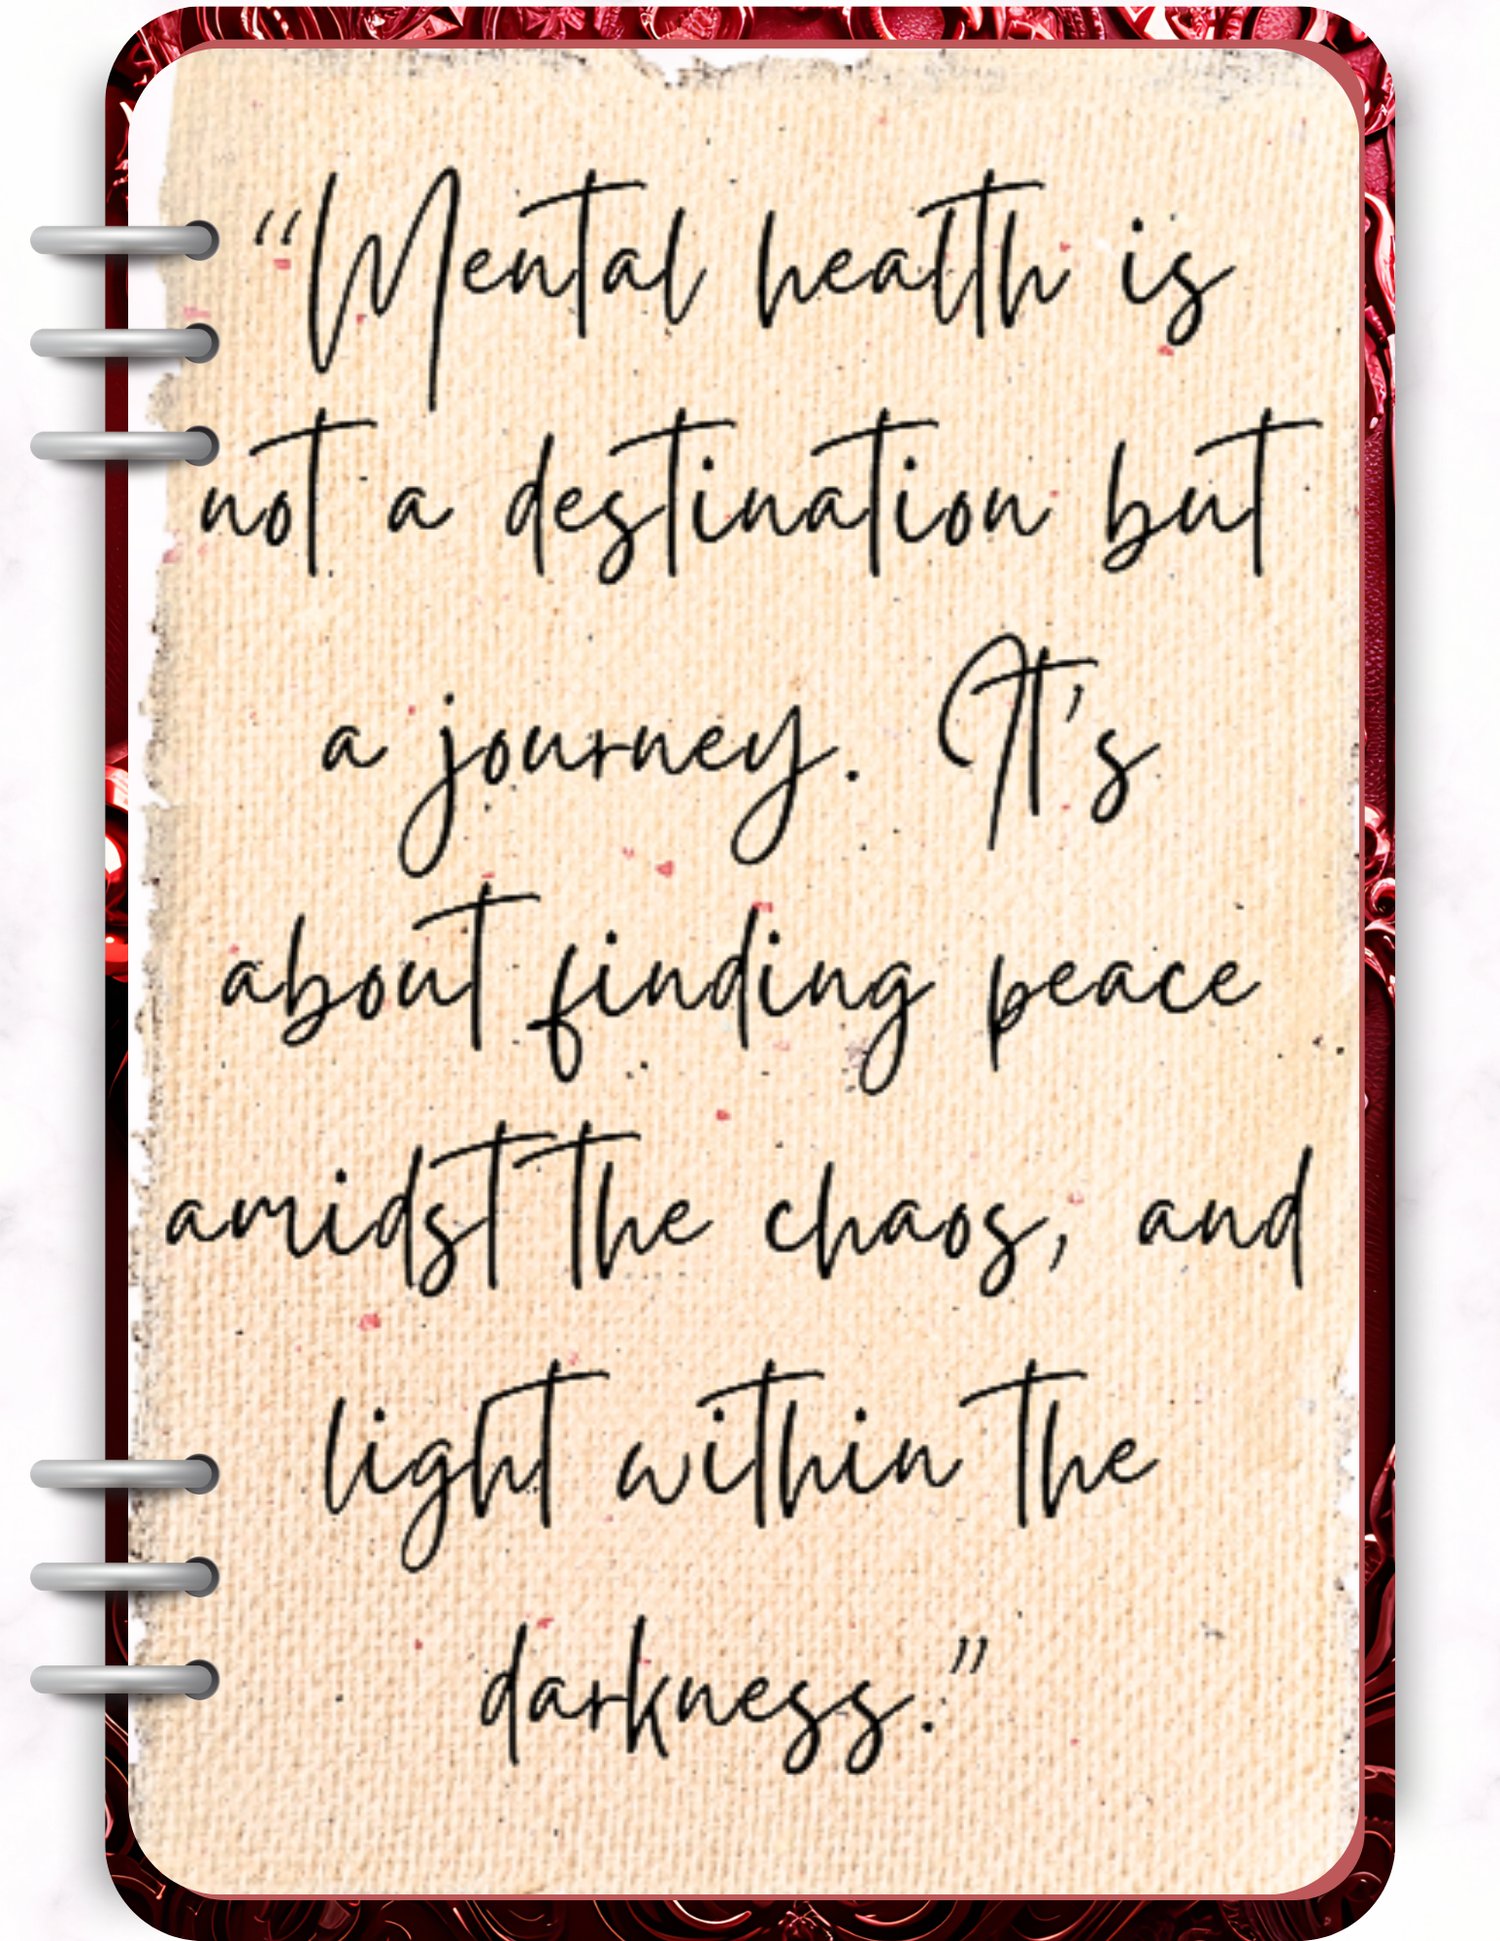 “Mental health is
not a destination but
a journey. It’s
about finding peace
amidst the chaos, and
light within the
darkness.”